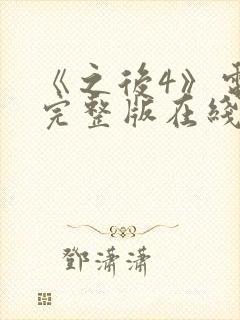 《之後4》
完整版在綫
鄧瀟瀟